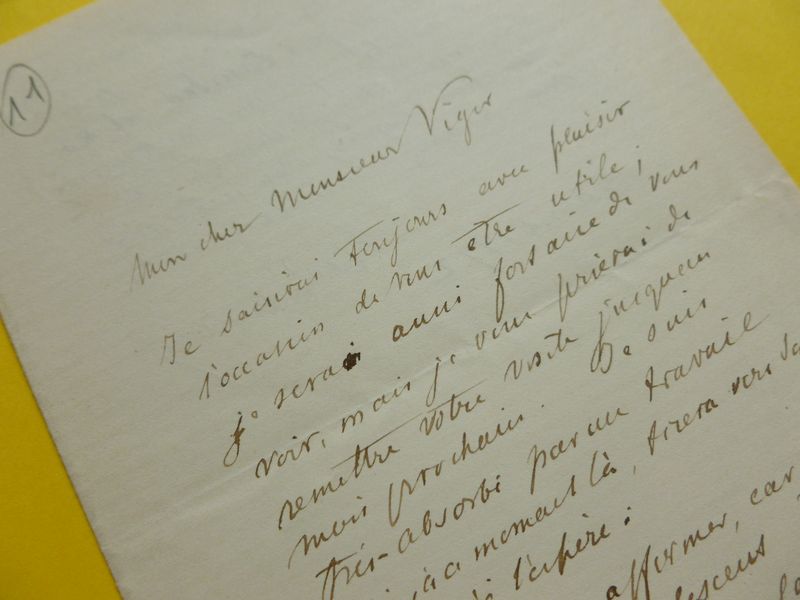 11
Mon cher Monsieur Viger
Je saisirai toujours avec plaisir
l'occasion de vous être utile;
je serai aussi fort aise de vous
voir, mais je vous prierai de
remettre votre visite jusqu'au
mois prochain. Je suis
très-absorbé par un travail
à ce moment là, tirera vers sa
j'espère:
affirmer, car